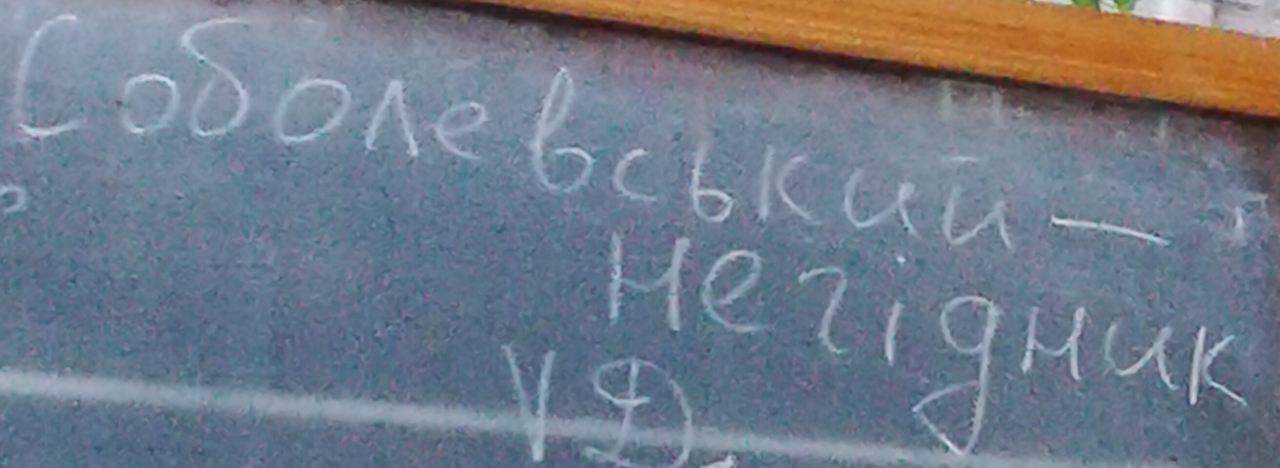 Соболевський —
негідник